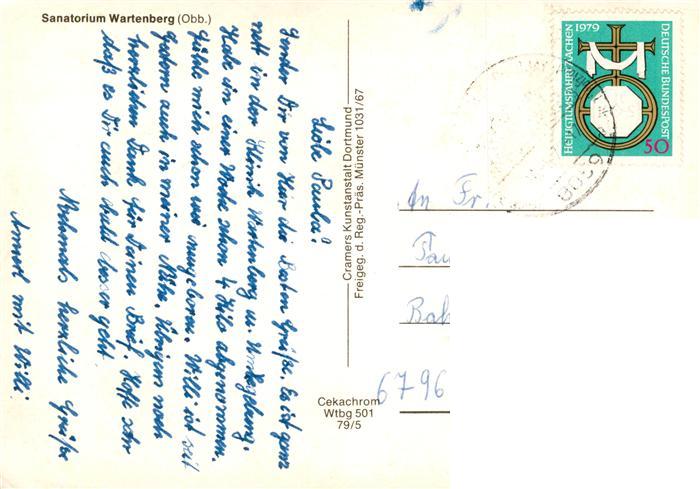 Sanatorium Wartenberg (Obb.)
Liebe Paula!
Sender Dir von hier die besten Grüße. Es ist ganz
nett in der Klinik Wartenberg u. Umgebung.
Habe in einer Woche schon 4 Kilo abgenommen.
Fühle mich schon wie neugeboren. Willi ist seit
gestern auch in meiner Nähe. Übrigens noch
herzlichen Dank für Deinen Brief. Hoffe sehr
daß es Dir auch bald besser geht.
Nochmals herzliche Grüße
Annerl mit Willi.
Cramers Kunstanstalt Dortmund
Freigeg. d. Reg.-Präs. Münster 1031/67
Cekachrom
Wtbg 501
79/5
HEILIGTUMSFAHRT AACHEN 1979
DEUTSCHE BUNDESPOST
50
8059
An Fr.
Bah
6796